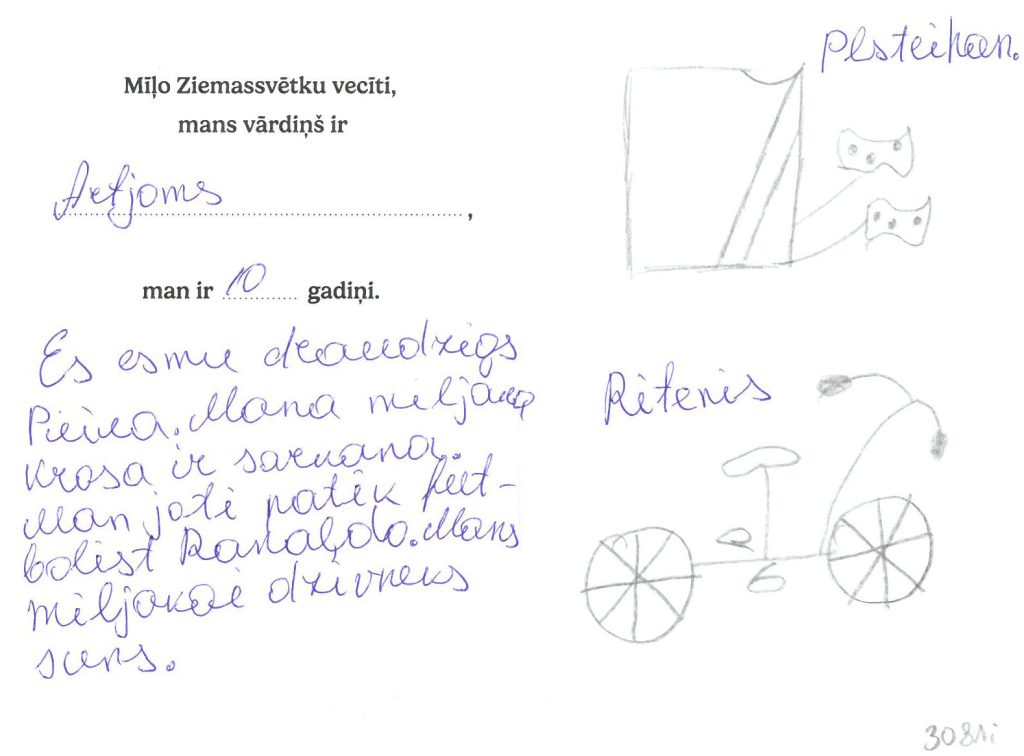 Mīļo Ziemassvētku vecīti,
mans vārdiņš ir
Artjoms,
man ir 10 gadiņi.
Es esmu draudzigs
Mana miljaka
krasa ir sarkana.
Man joti patēk fut-
bolist Ranaldo. Mans
miljakai dzivneks
suns.
Plsteihen.
Ritenis